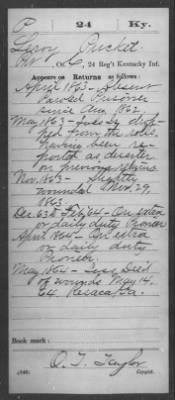 P 24 Ky.
Leroy Pucket
Pvt, Co. G, 24 Reg't Kentucky Inf.
Appears on Returns as follows:
April 1863 - Absent
Paroled Prisoner
since Aug 1862
May 1863 - drop-
ped from the rolls.
Having been re-
ported as deserter
on previous returns
Nov. 1863 - Slightly
wounded Nov. 29,
1863.
Dec 63 & Feby 64 - On extra
or daily duty Pioneer
April 1864 - On extra
or daily duty
Pioneer.
May 1864 - Died
of wounds May 14,
64 Resaca, Ga.
Book mark:
Copyist.